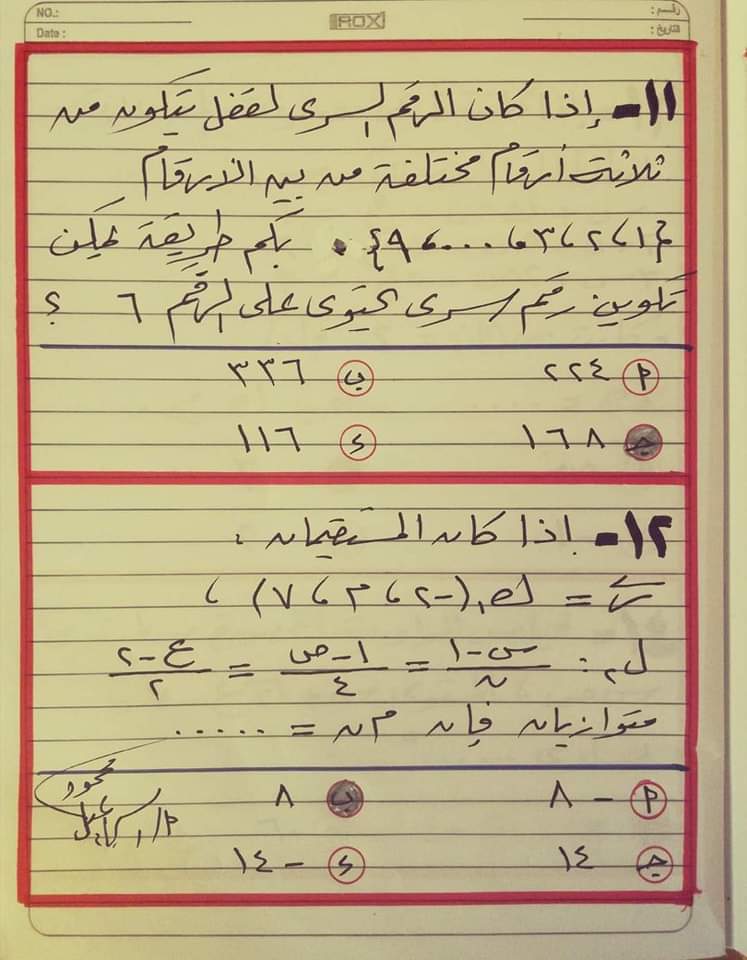 NO.:
رقم :
ROX
Date :
التاريخ :
١١- إذا كان الرقم السرى لقفل يتكون من
ثلاثة أرقام مختلفة من بين الأرقام
{١، ٢، ٣، ....، ٩}. بكم طريقة يمكن
تكوين رقم سرى يحتوى على الرقم ٦ ؟
أ ٢٢٤ ب ٣٣٦
جـ ١٦٨ د ١١٦
١٢- إذا كان المستقيمان ،
ر = ك١(-٢، م، ٧) ،
ل٢: (س-١)/ن = (١-ص)/٤ = (ع-٢)/٢
متوازيان فإن م ن = ......
أ -٨ ب ٨
جـ ١٤ د -١٤
محمود